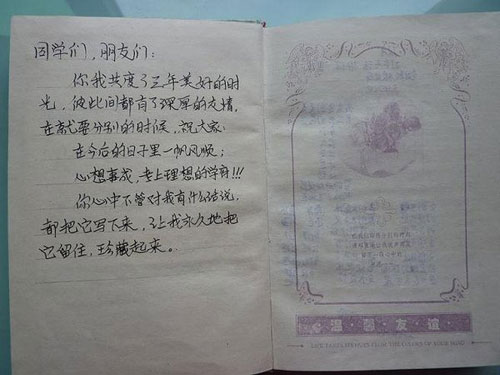 同学们，朋友们：
你我共度了三年美好的时
光，彼此间都有了深厚的友情，
在就要分别的时候，祝大家：
在今后的日子里一帆风顺；
心想事成，考上理想的学府!!!
你心中不管对我有什么话说，
都把它写下来，让我永久地把
它留住，珍藏起来。
温馨友谊